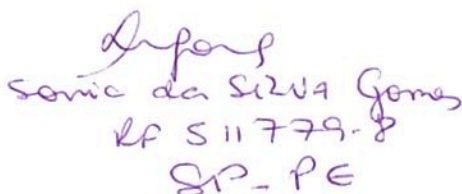 Sonia da Silva Gomes
RF 511779-8
SP-PE